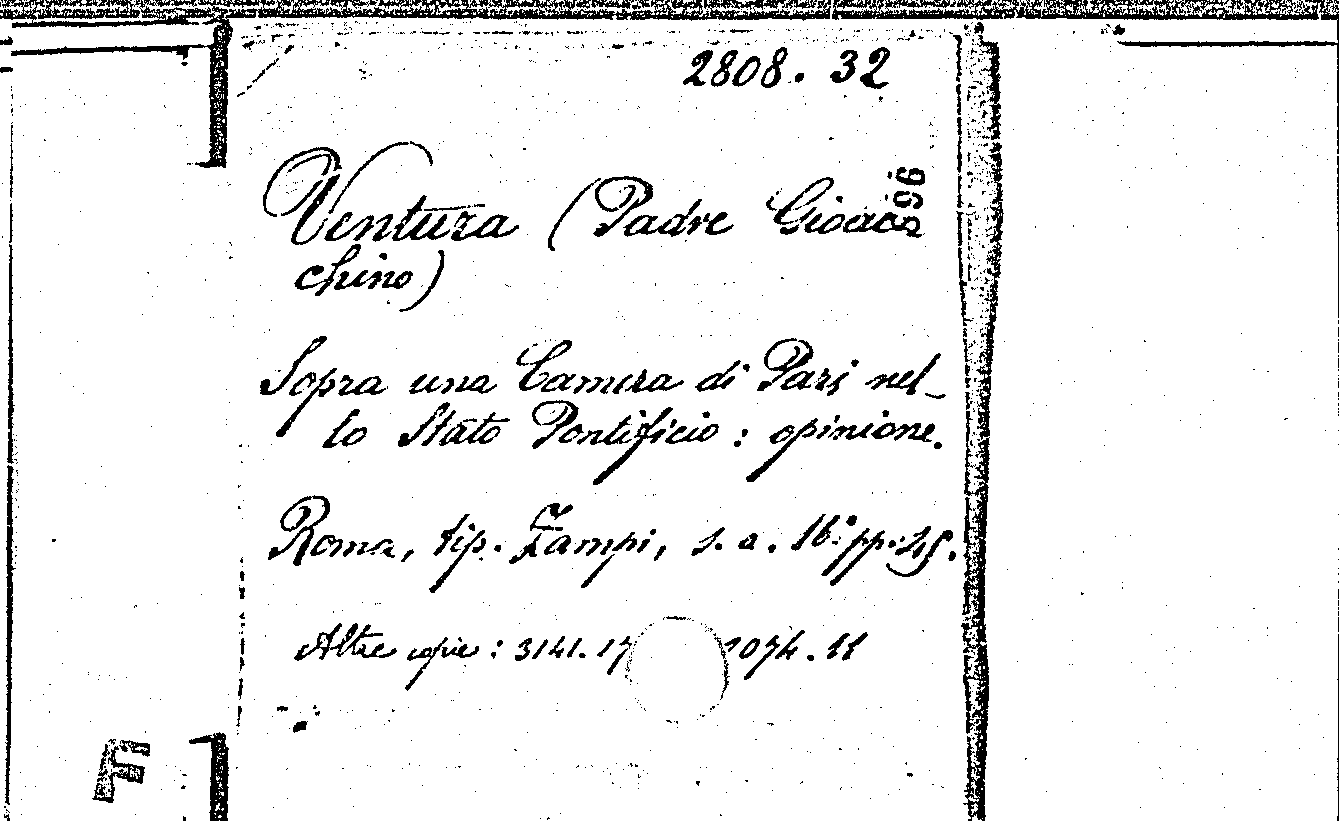 2808. 32
596
Ventura (Padre Gioac
chino)
Sopra una Camera di Pari nel-
lo Stato Pontificio : opinione.
Roma, tip. Zampi, s. a. 16.° pp.
Altre copie : 3141. 17 1074. 11
F